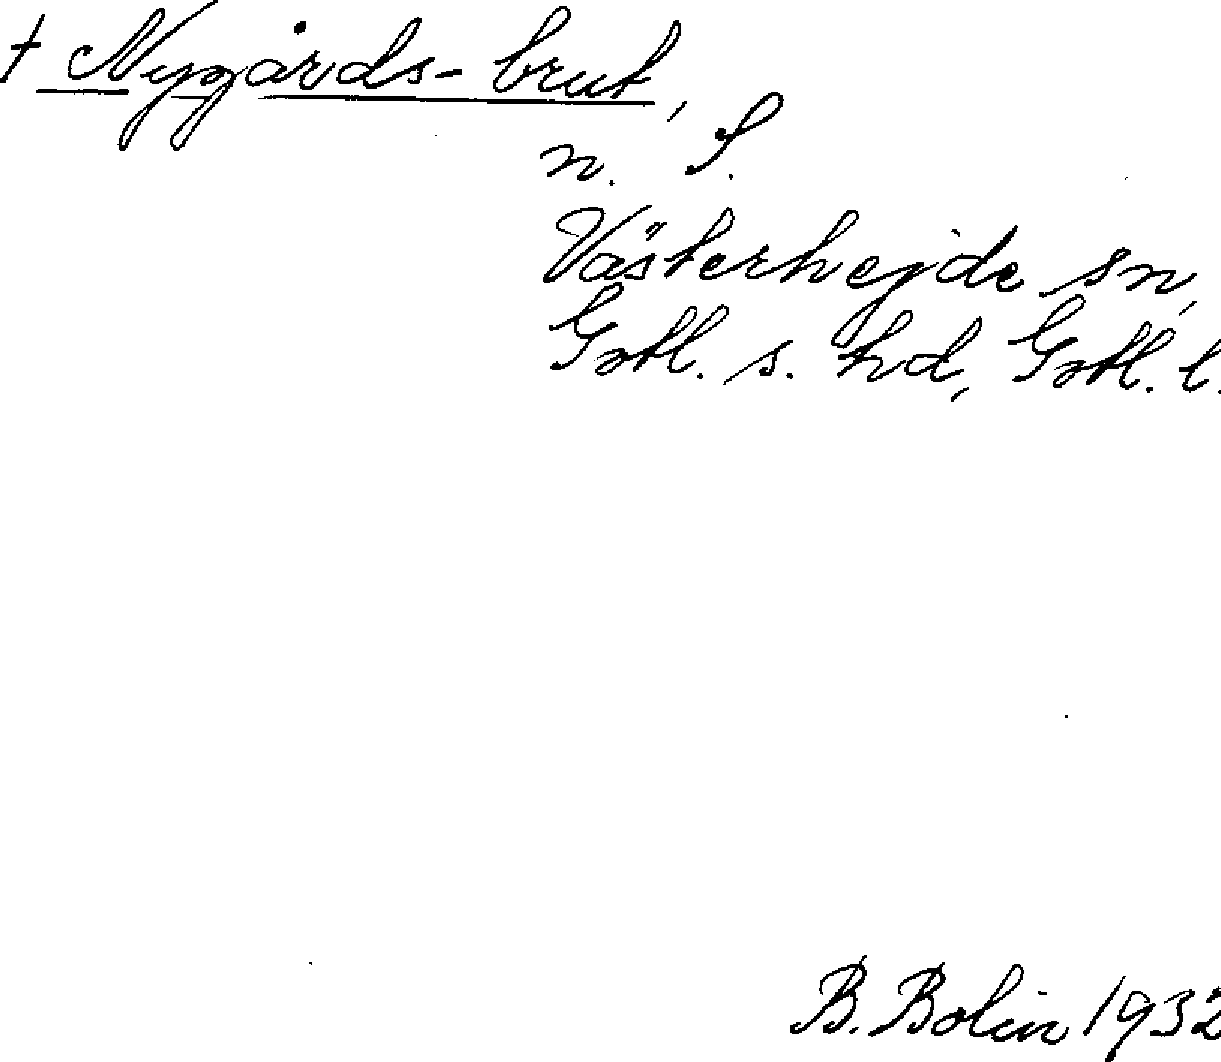 † Nygårds-brut,
n. S.
Västerhejde sn,
Gotl. s. hd, Gotl. l.
B. Bolin 1932